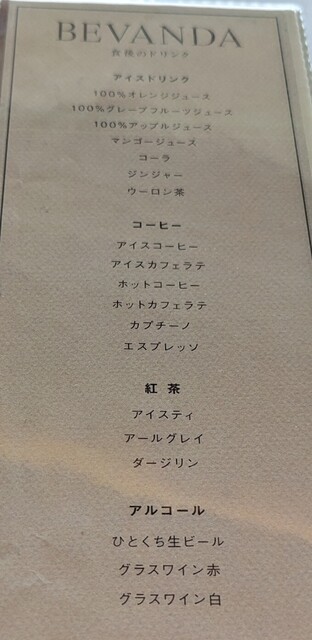 BEVANDA
食後のドリンク
アイスドリンク
100%オレンジジュース
100%グレープフルーツジュース
100%アップルジュース
マンゴージュース
コーラ
ジンジャー
ウーロン茶
コーヒー
アイスコーヒー
アイスカフェラテ
ホットコーヒー
ホットカフェラテ
カプチーノ
エスプレッソ
紅茶
アイスティ
アールグレイ
ダージリン
アルコール
ひとくち生ビール
グラスワイン赤
グラスワイン白